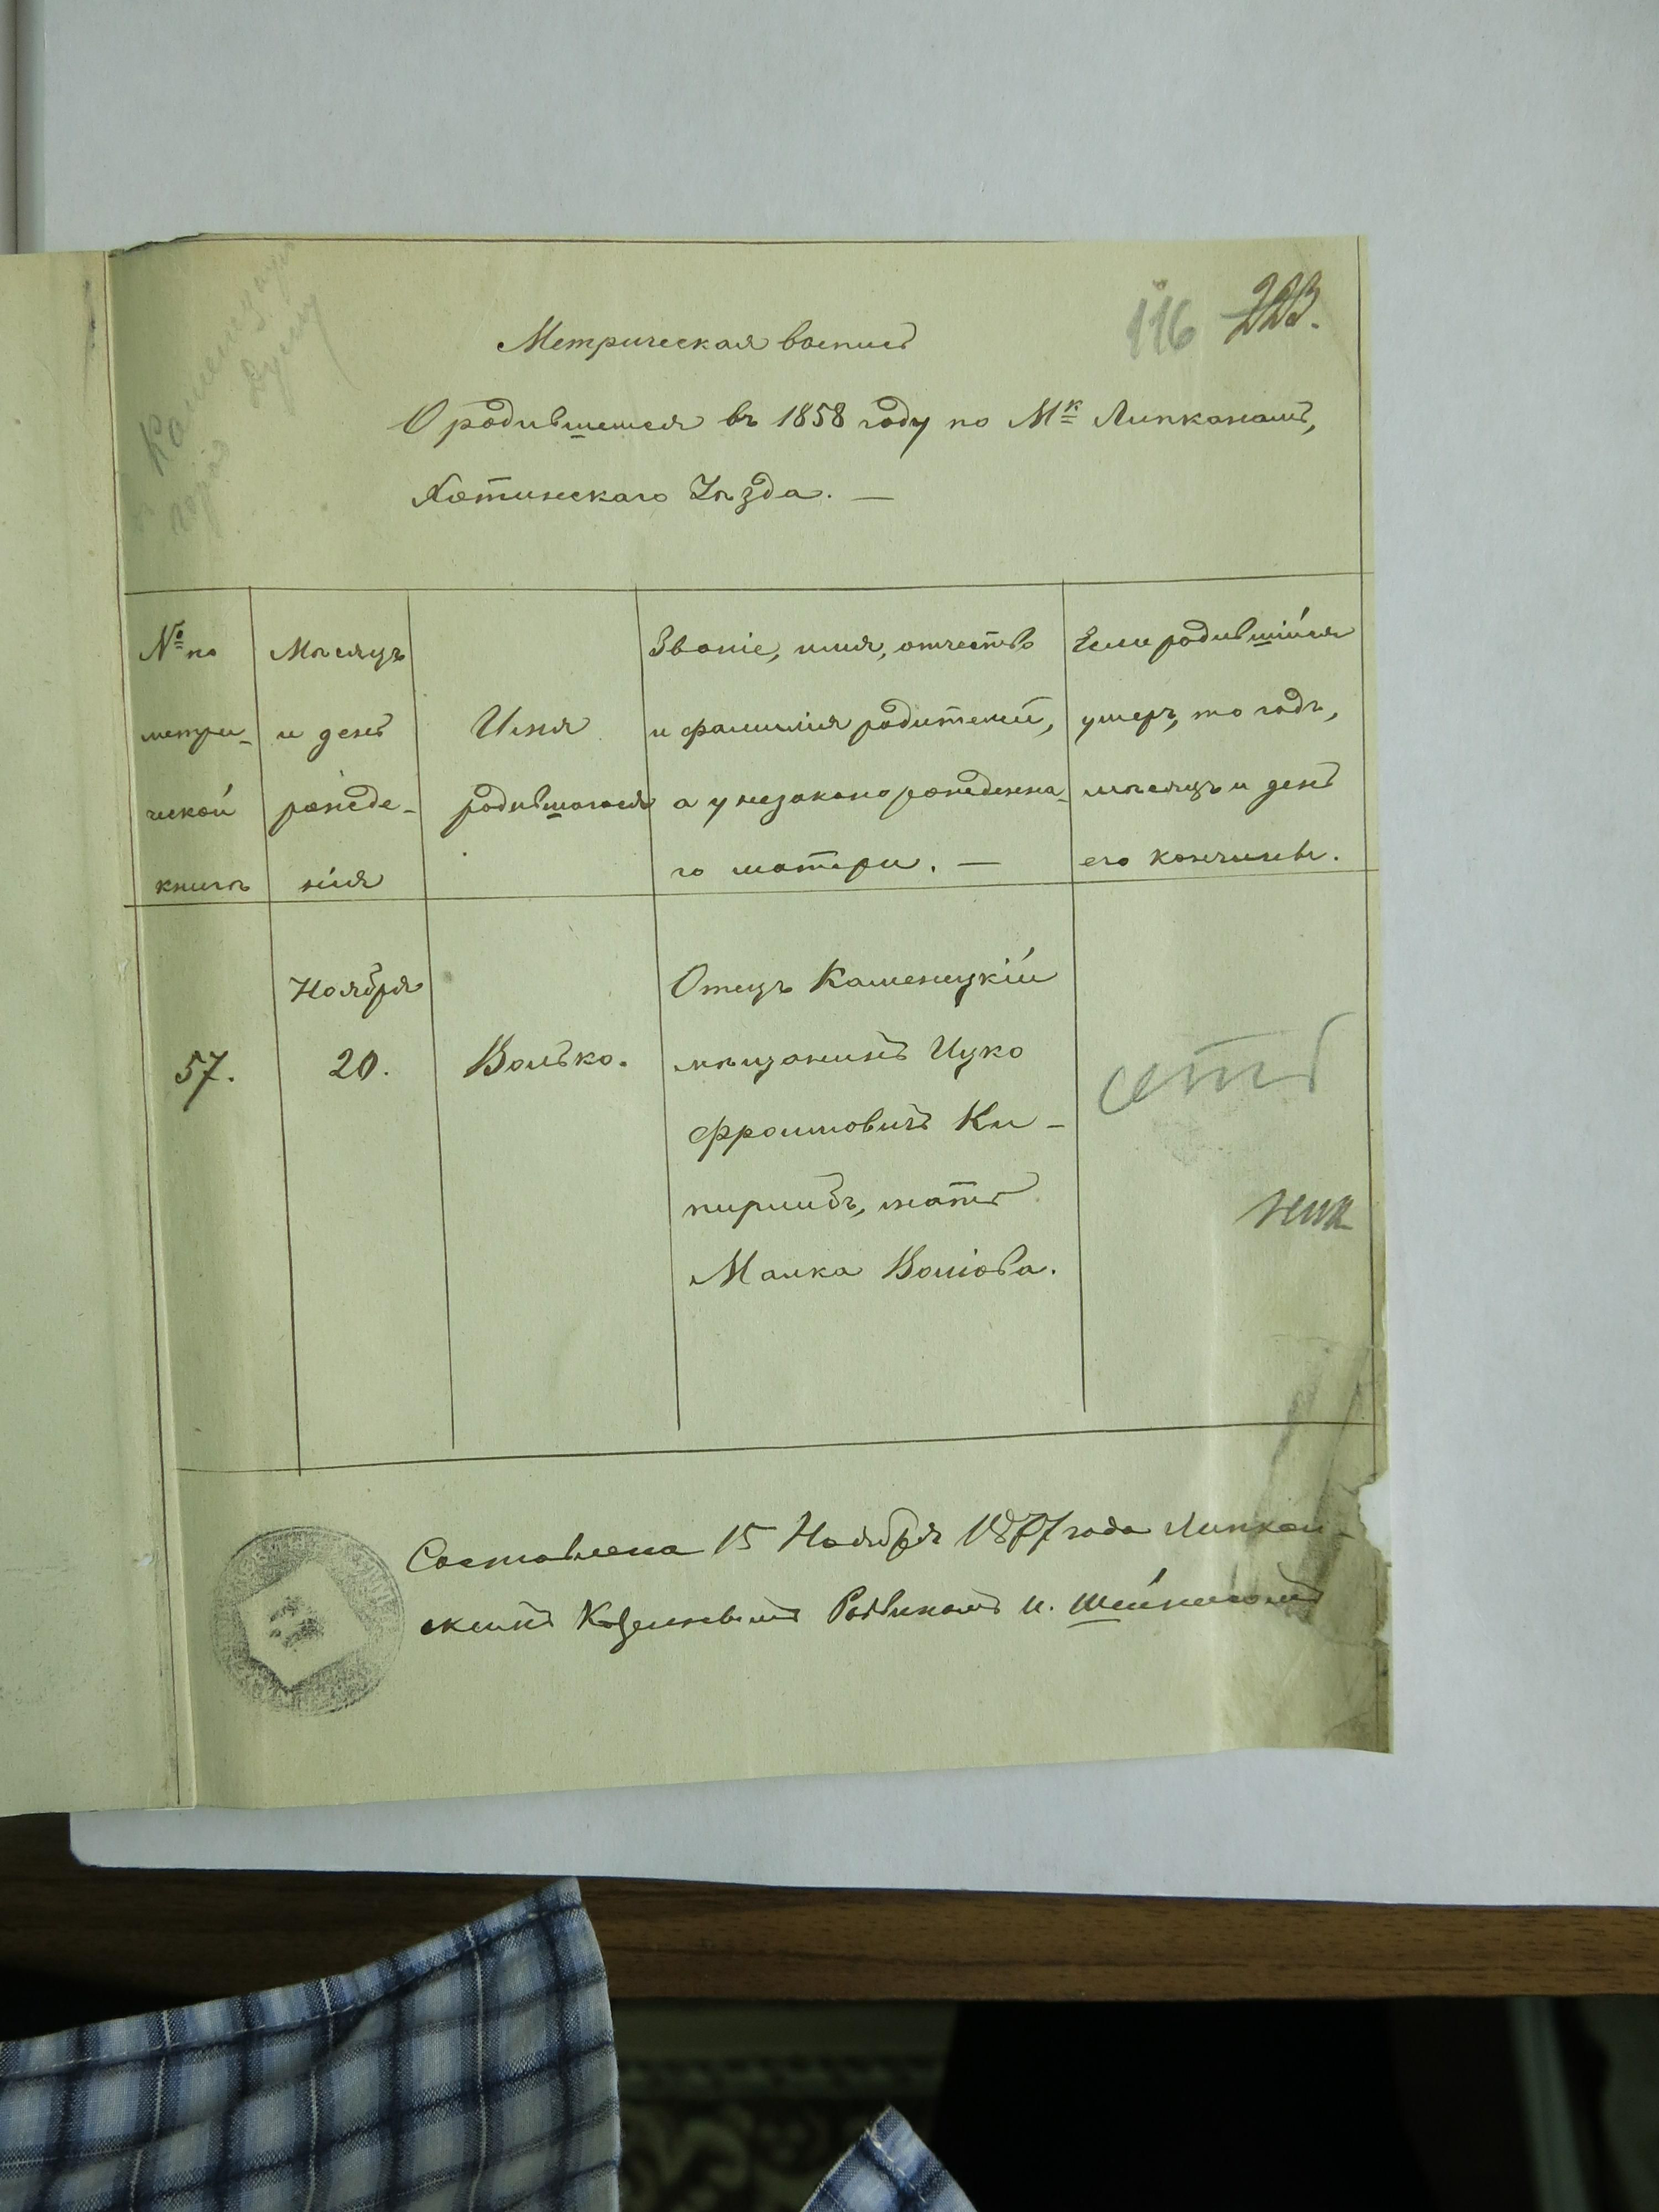 116 223.
Метрическая вопись
О родившемся въ 1858 году по М<sup>к</sup> Липканамъ,
Хотинскаго Уѣзда. —
№ по
метри-
ческой
книгѣ
Мѣсяцъ
и день
рожде-
нія
Имя
родившагося
Званіе, имя, отчество
и фамилія родителей,
а у незаконорожденна-
го матери. —
Если родившійся
умеръ, то годъ,
мѣсяцъ и день
его кончины.
57.
Ноября
20.
Волько.
Отецъ Каменецкій
мѣщанинъ Ицко
Фроимовичъ Ки-
першидъ, мать
Малка Воліова.
Составлена 15 Ноября 1877 года Липкан-
скимъ Казеннымъ Раввиномъ И.